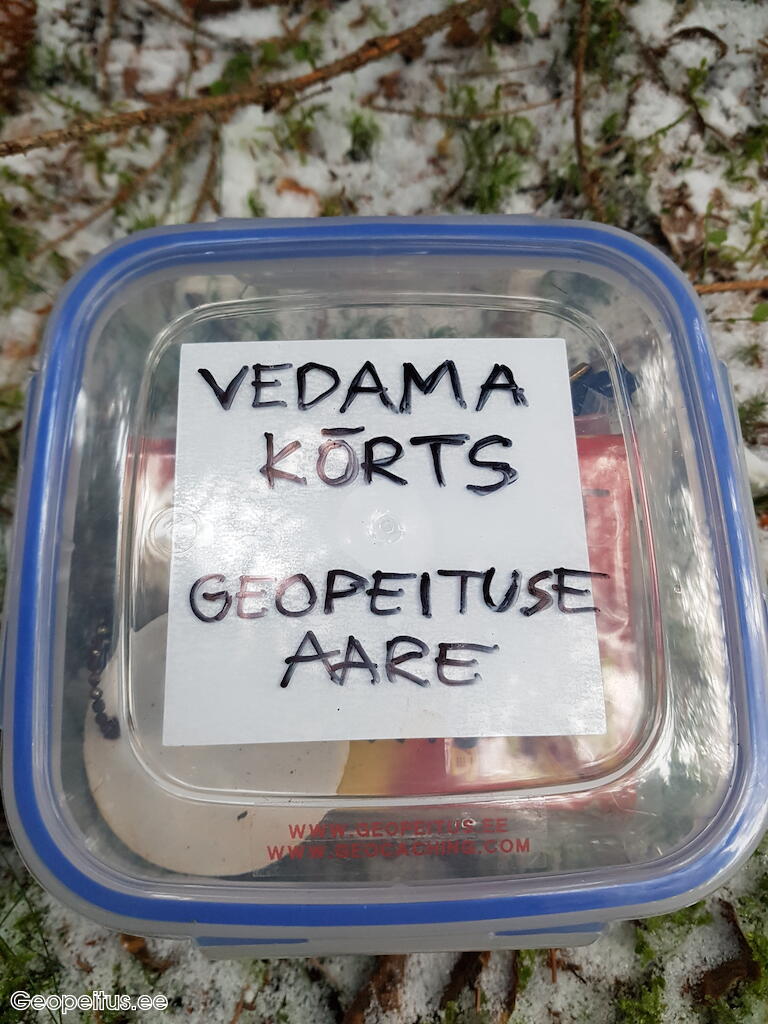 VEDAMA
KŌRTS
GEOPEITUSE
AARE
WWW.GEOPEITUS.EE
WWW.GEOCACHING.COM
Geopeitus.ee